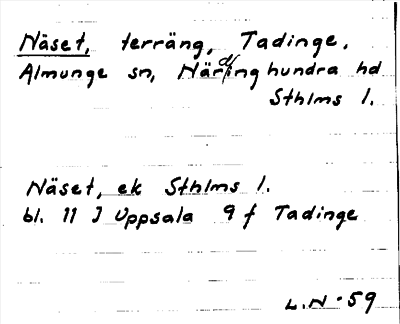 Näset, terräng, Tadinge.
Almunge sn, Närdinghundra hd
Sthlms l.
Näset, ek Sthlms l.
bl. 11 J Uppsala 9 f Tadinge
L.N-59